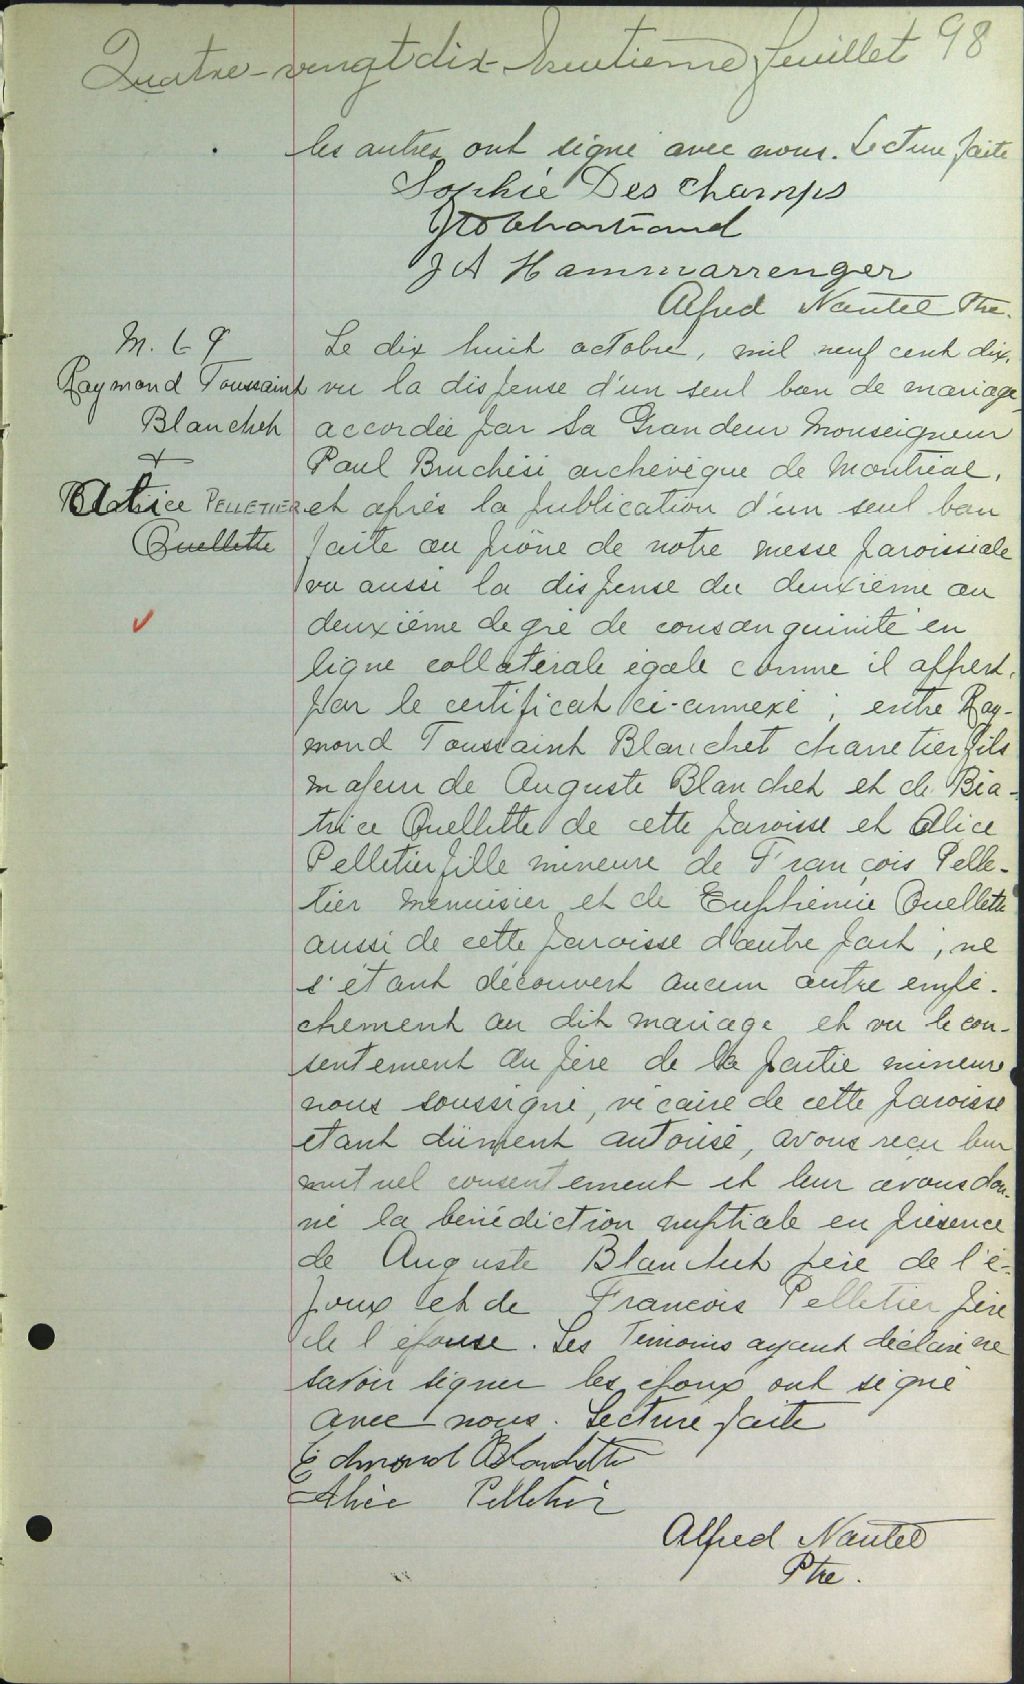 Quatre-vingt dix-huitième feuillet 98
les autres ont signé avec nous. Lecture faite
Sophie DesChamps
Chartrand
J A Hammarrenger
Alfred Nantel Ptre.
M. 69
Raymond Toussaint
Blanchet
+
Alice PELLETIER
Ouellette
Le dix huit octobre, mil neuf cent dix,
vu la dispense d'un seul ban de mariage,
accordée par Sa Grandeur Monseigneur
Paul Bruchési archevêque de Montréal,
et après la publication d'un seul ban
faite au prône de notre messe paroissiale
vu aussi la dispense du deuxième au
deuxième degré de consanguinité en
ligne collatérale égale comme il appert,
par le certificat ci-annexé ; entre Ray-
mond Toussaint Blanchet charretier fils
majeur de Auguste Blanchet et de Béa-
trice Ouellette de cette paroisse et Alice
Pelletier fille mineure de François Pelle-
tier menuisier et de Euphémie Ouellette
aussi de cette paroisse d'autre part ; ne
s'étant découvert aucun autre empê-
chement au dit mariage et vu le con-
sentement du père de la partie mineure
nous soussigné, vicaire de cette paroisse
étant dûment autorisé, avons reçu leur
mutuel consentement et leur avons don-
né la bénédiction nuptiale en présence
de Auguste Blanchet père de l'é-
poux et de François Pelletier père
de l'épouse. Les Témoins ayant déclaré ne
savoir signer les époux ont signé
avec nous. Lecture faite
Edmond Blanchette
Alice Pelletier
Alfred Nantel
Ptre.